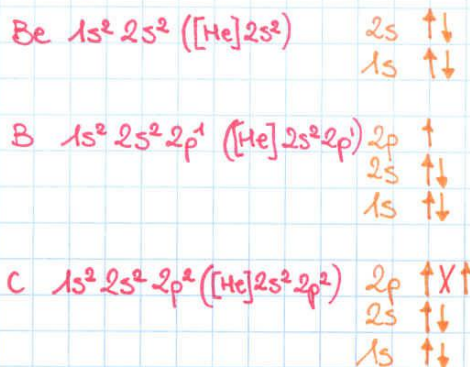 Be 1s² 2s² ([He]2s²) 2s ↑↓
1s ↑↓
B 1s² 2s² 2p¹ ([He]2s²2p¹) 2p ↑
2s ↑↓
1s ↑↓
C 1s² 2s² 2p² ([He]2s² 2p²) 2p ↑X↑
2s ↑↓
1s ↑↓